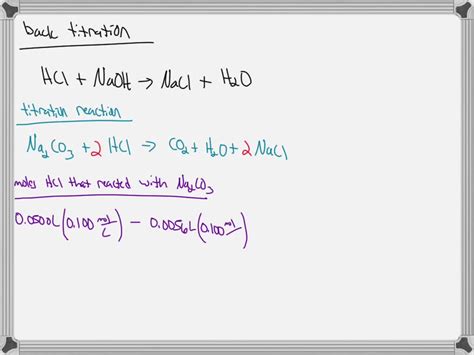 back titration
HCl + NaOH → NaCl + H₂O
titration reaction
Na₂CO₃ + 2 HCl → CO₂ + H₂O + 2 NaCl
moles HCl that reacted with Na₂CO₃
0.0500L (0.100 mol/L) − 0.0056L (0.100 mol/